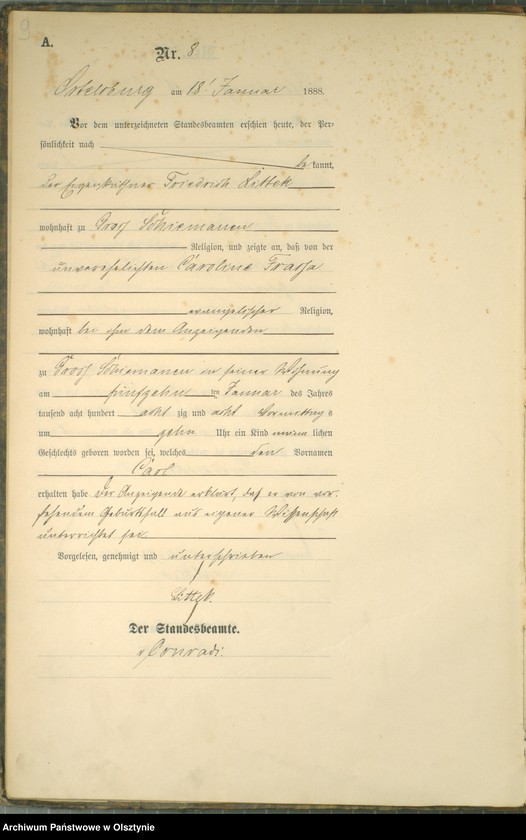 9
A.
Nr. 8
Ortelsburg am 18 Januar 1888.
Vor dem unterzeichneten Standesbeamten erschien heute, der Per-
sönlichkeit nach
be kannt,
der Eigenkäthner Friedrich Littek
wohnhaft zu Gross Schiemanen
Religion, und zeigte an, daß von der
unverehelichten Caroline
evangelischer Religion,
wohnhaft bei ihm dem Anzeigenden
zu Gross Schiemanen in seiner Wohnung
am fünfzehn ten Januar des Jahres
tausend acht hundert acht zig und acht Vormittags
um zehn Uhr ein Kind männlichen
Geschlechts geboren worden sei, welches den Vornamen
Carl
erhalten habe Der Anzeigende erklärt, daß er von vor-
stehendem Geburtsfall aus eigener Wissenschaft
unterrichtet sei.
Vorgelesen, genehmigt und unterschrieben
Littek.
Der Standesbeamte.
v Conradi.
Archiwum Państwowe w Olsztynie